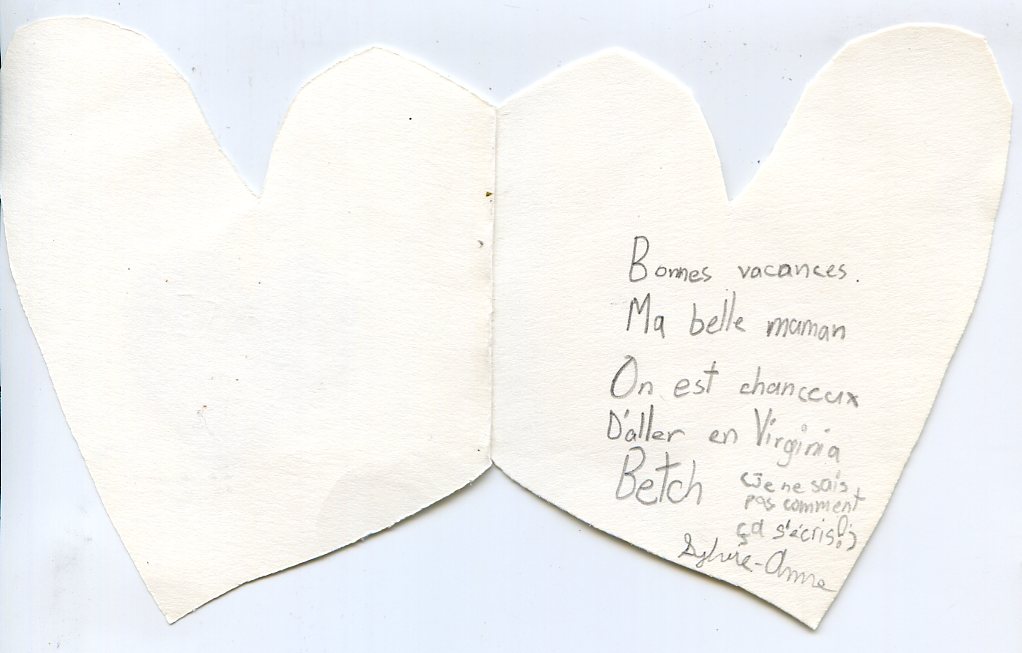 Bonnes vacances.
Ma belle maman
On est chanceux
D'aller en Virginia
Betch (je ne sais
pas comment
ça s'écris!)
Sylvie-Anne